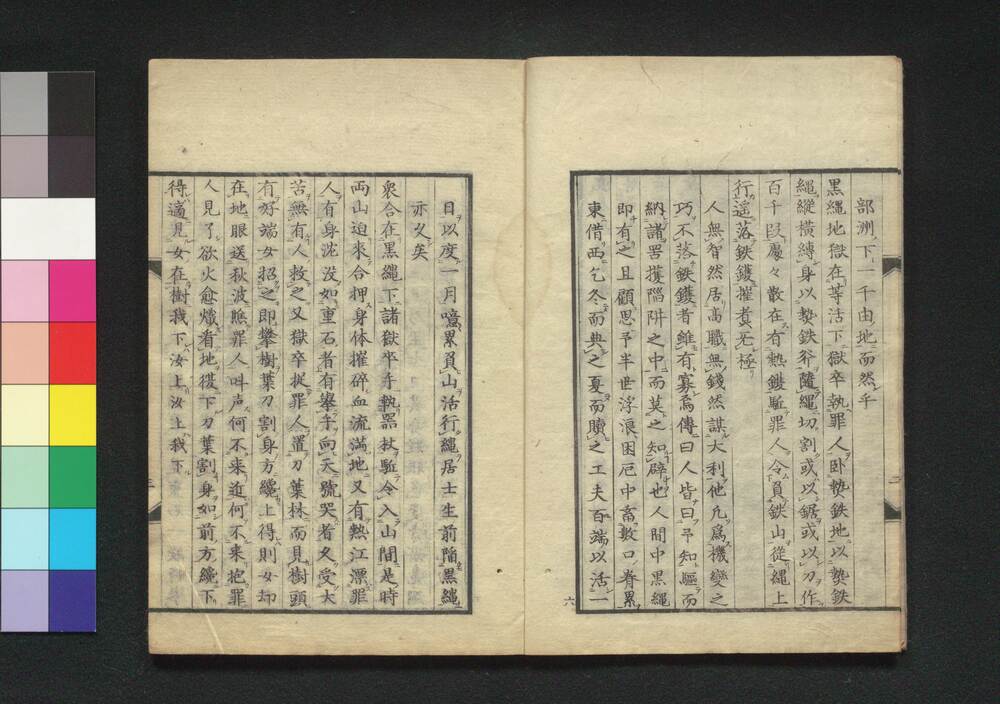 部洲下一千由地而然乎
黒繩地獄在等活下獄卒執罪人卧熱鉄地以熱鉄
繩縱横縛身以熱鉄斧隨繩切割或以鋸或以刀作
百千段處々散在有熱鑊駈罪人令負鉄山從繩上
行遥落鉄鑊摧煮无極
人無智然居高職無錢然謀大利他凡為機變之
巧不落鉄鑊者雖有寡焉傳曰人皆曰予知驅而
納諸罟擭陥阱之中而莫之知辟也人間中黒繩
即有之且顧思予半世浮浪困厄中畜數口眷累
東借西乞冬而典之夏而贖之工夫百端以活一
日以度一月噫累負山活行繩居士生前陥黒繩
亦久矣
衆合在黒繩下諸獄卒手執器杖駈令入山間是時
両山迫來合押身体摧碎血流満地又有熱江漂罪
人有身沈没如重石者有擧手向天號哭者久受大
苦無有人救之又獄卒捉罪人置刀葉林而見樹頭
有好端女招之即攀樹葉刀割身方纔上得則女却
在地眼送秋波瞧罪人呌声何不來近何不来抱罪
人見了欲火愈熾看地復下刀葉割身如前方纔下
得適見女在樹我下汝上汝上我下
二
三
六